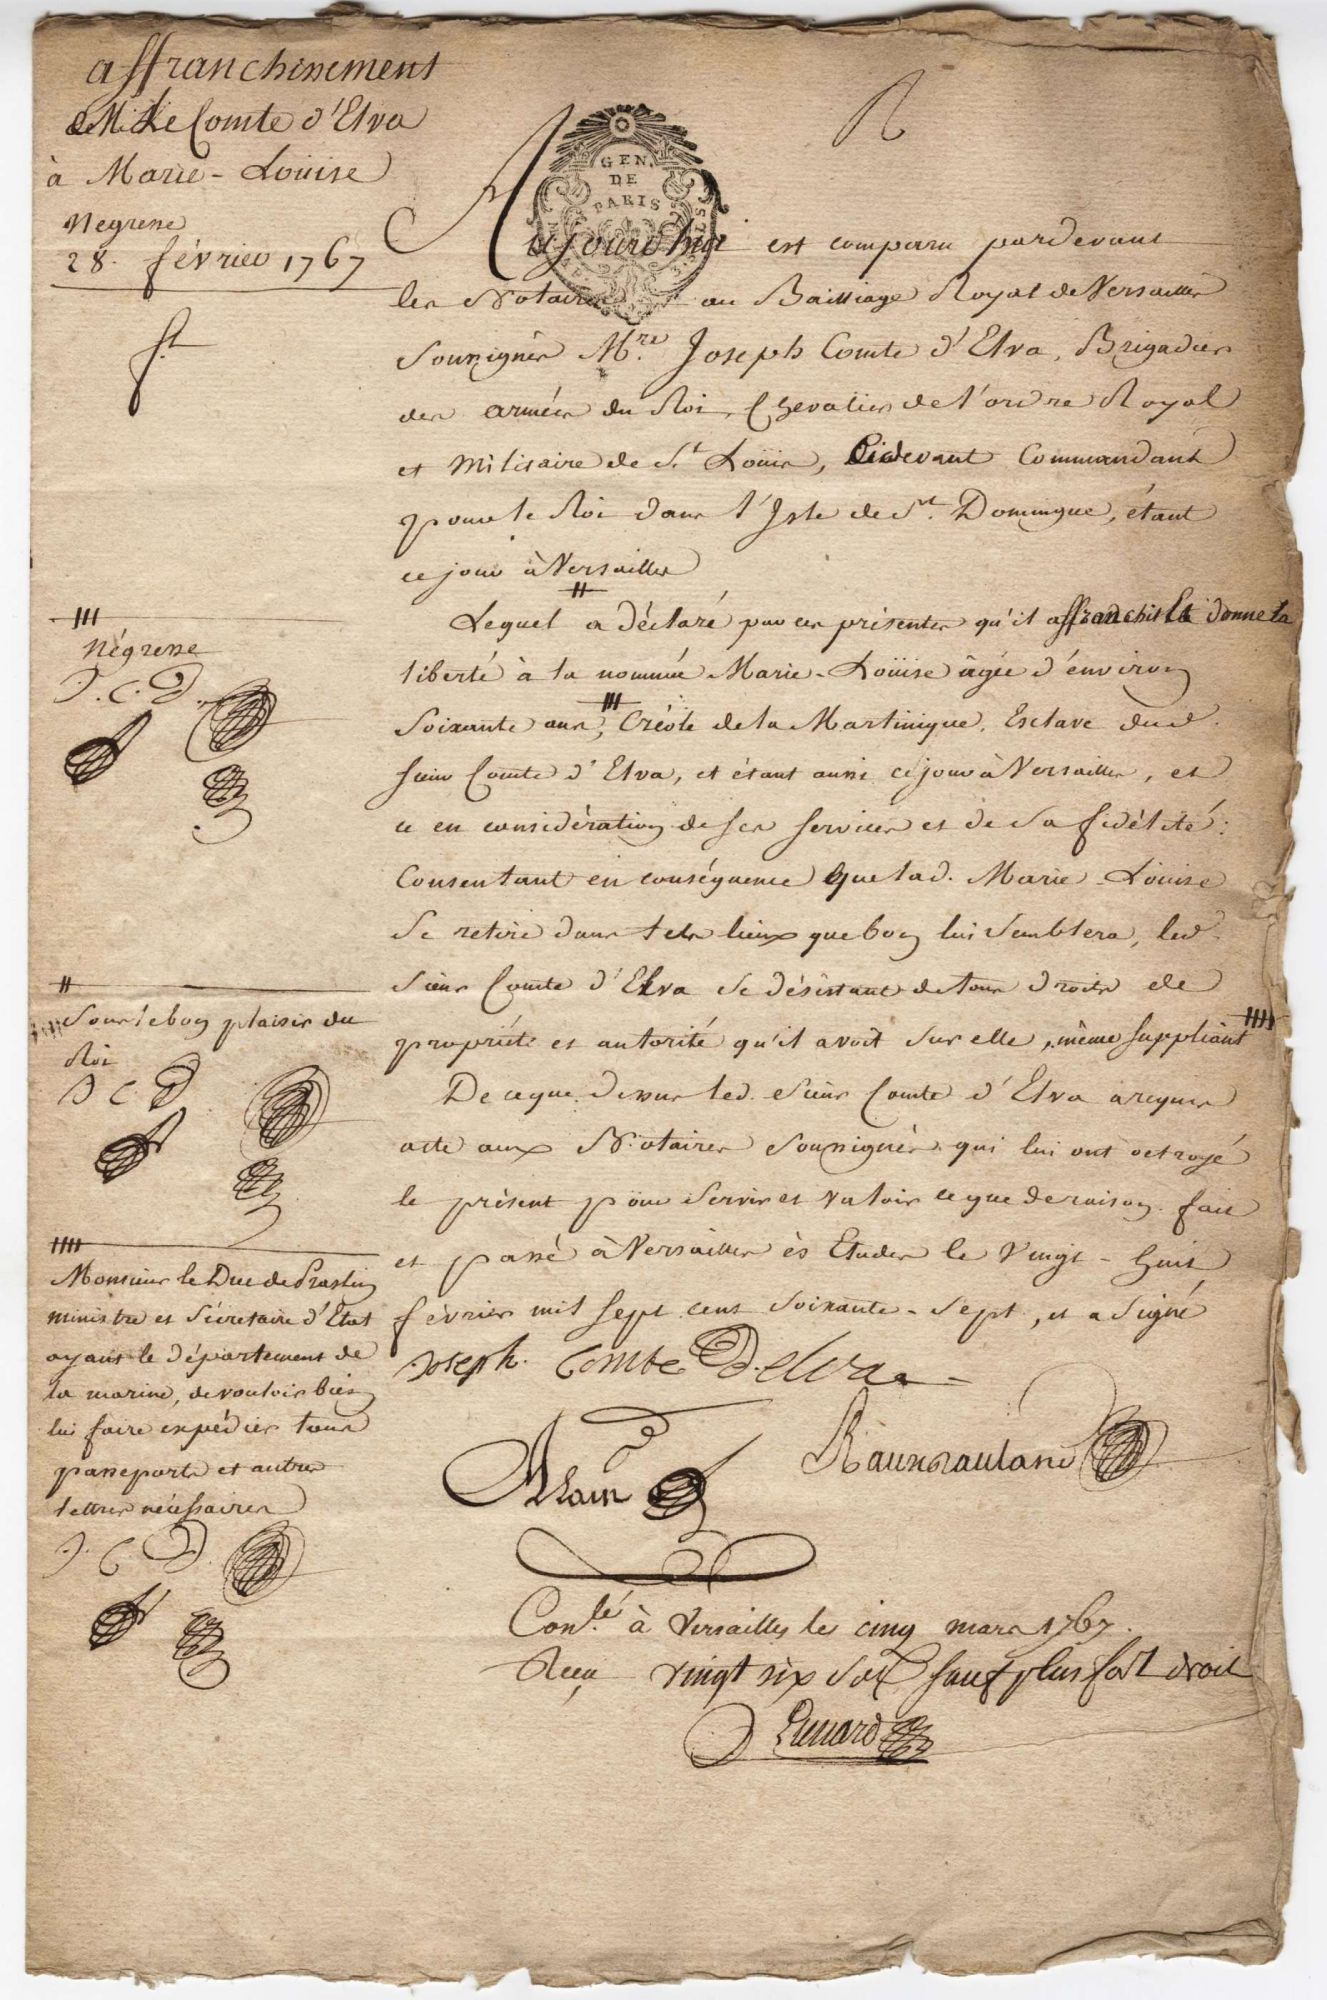 affranchissement
de M. Le Comte d'Elva
à Marie-Loüise
Négresse
28. février 1767
GEN.
DE
PARIS
Aujourd'hui est comparu pardevant
les Notaires au Bailliage Royal de Versailles
soussignés M.re Joseph Comte d'Elva, Brigadier
des armées du Roi, Chevalier de l'ordre Royal
et Militaire de S.t Loüis, Cidevant Commandant
pour le Roi dans l'Isle de S.t Domingue, étant
ce jour à Versailles
Lequel a déclaré par ces présentes qu'il affranchit et donne la
liberté à la nommée Marie-Loüise âgée d'environ
soixante ans, Créole de la Martinique, Esclave dud.
sieur Comte d'Elva, et étant aussi ce jour à Versailles, et
ce en considération de ses services et de sa fidélité:
Consentant en conséquence que lad. Marie-Loüise
se retire dans tels lieux que bon lui semblera, led.
Sieur Comte d'Elva se désistant de tous droits de
propriété et autorité qu'il avoit sur elle, même suppliant
De ce que dessus led. Sieur Comte d'Elva a requis
acte aux Notaires soussignés qui lui ont octroyé
le présent pour servir et valoir ce que de raison. fait
et passé à Versailles ès Etudes le Vingt-huit
février mil sept cent soixante-sept, et a signé
Joseph. Comte D.elva
négresse
J. C. D.
sous le bon plaisir du
Roi
J C D
Monsieur le Duc de Praslin
ministre et Sécretaire d'Etat
ayant le département de
la marine, de vouloir bien
lui faire expédier tous
passeports et autres
lettres nécessaires
J. C D.
Alain
Rauxrauland
Con.lé à Versailles le cinq mars 1767.
Reçu vingt six sols sauf plus fort droit